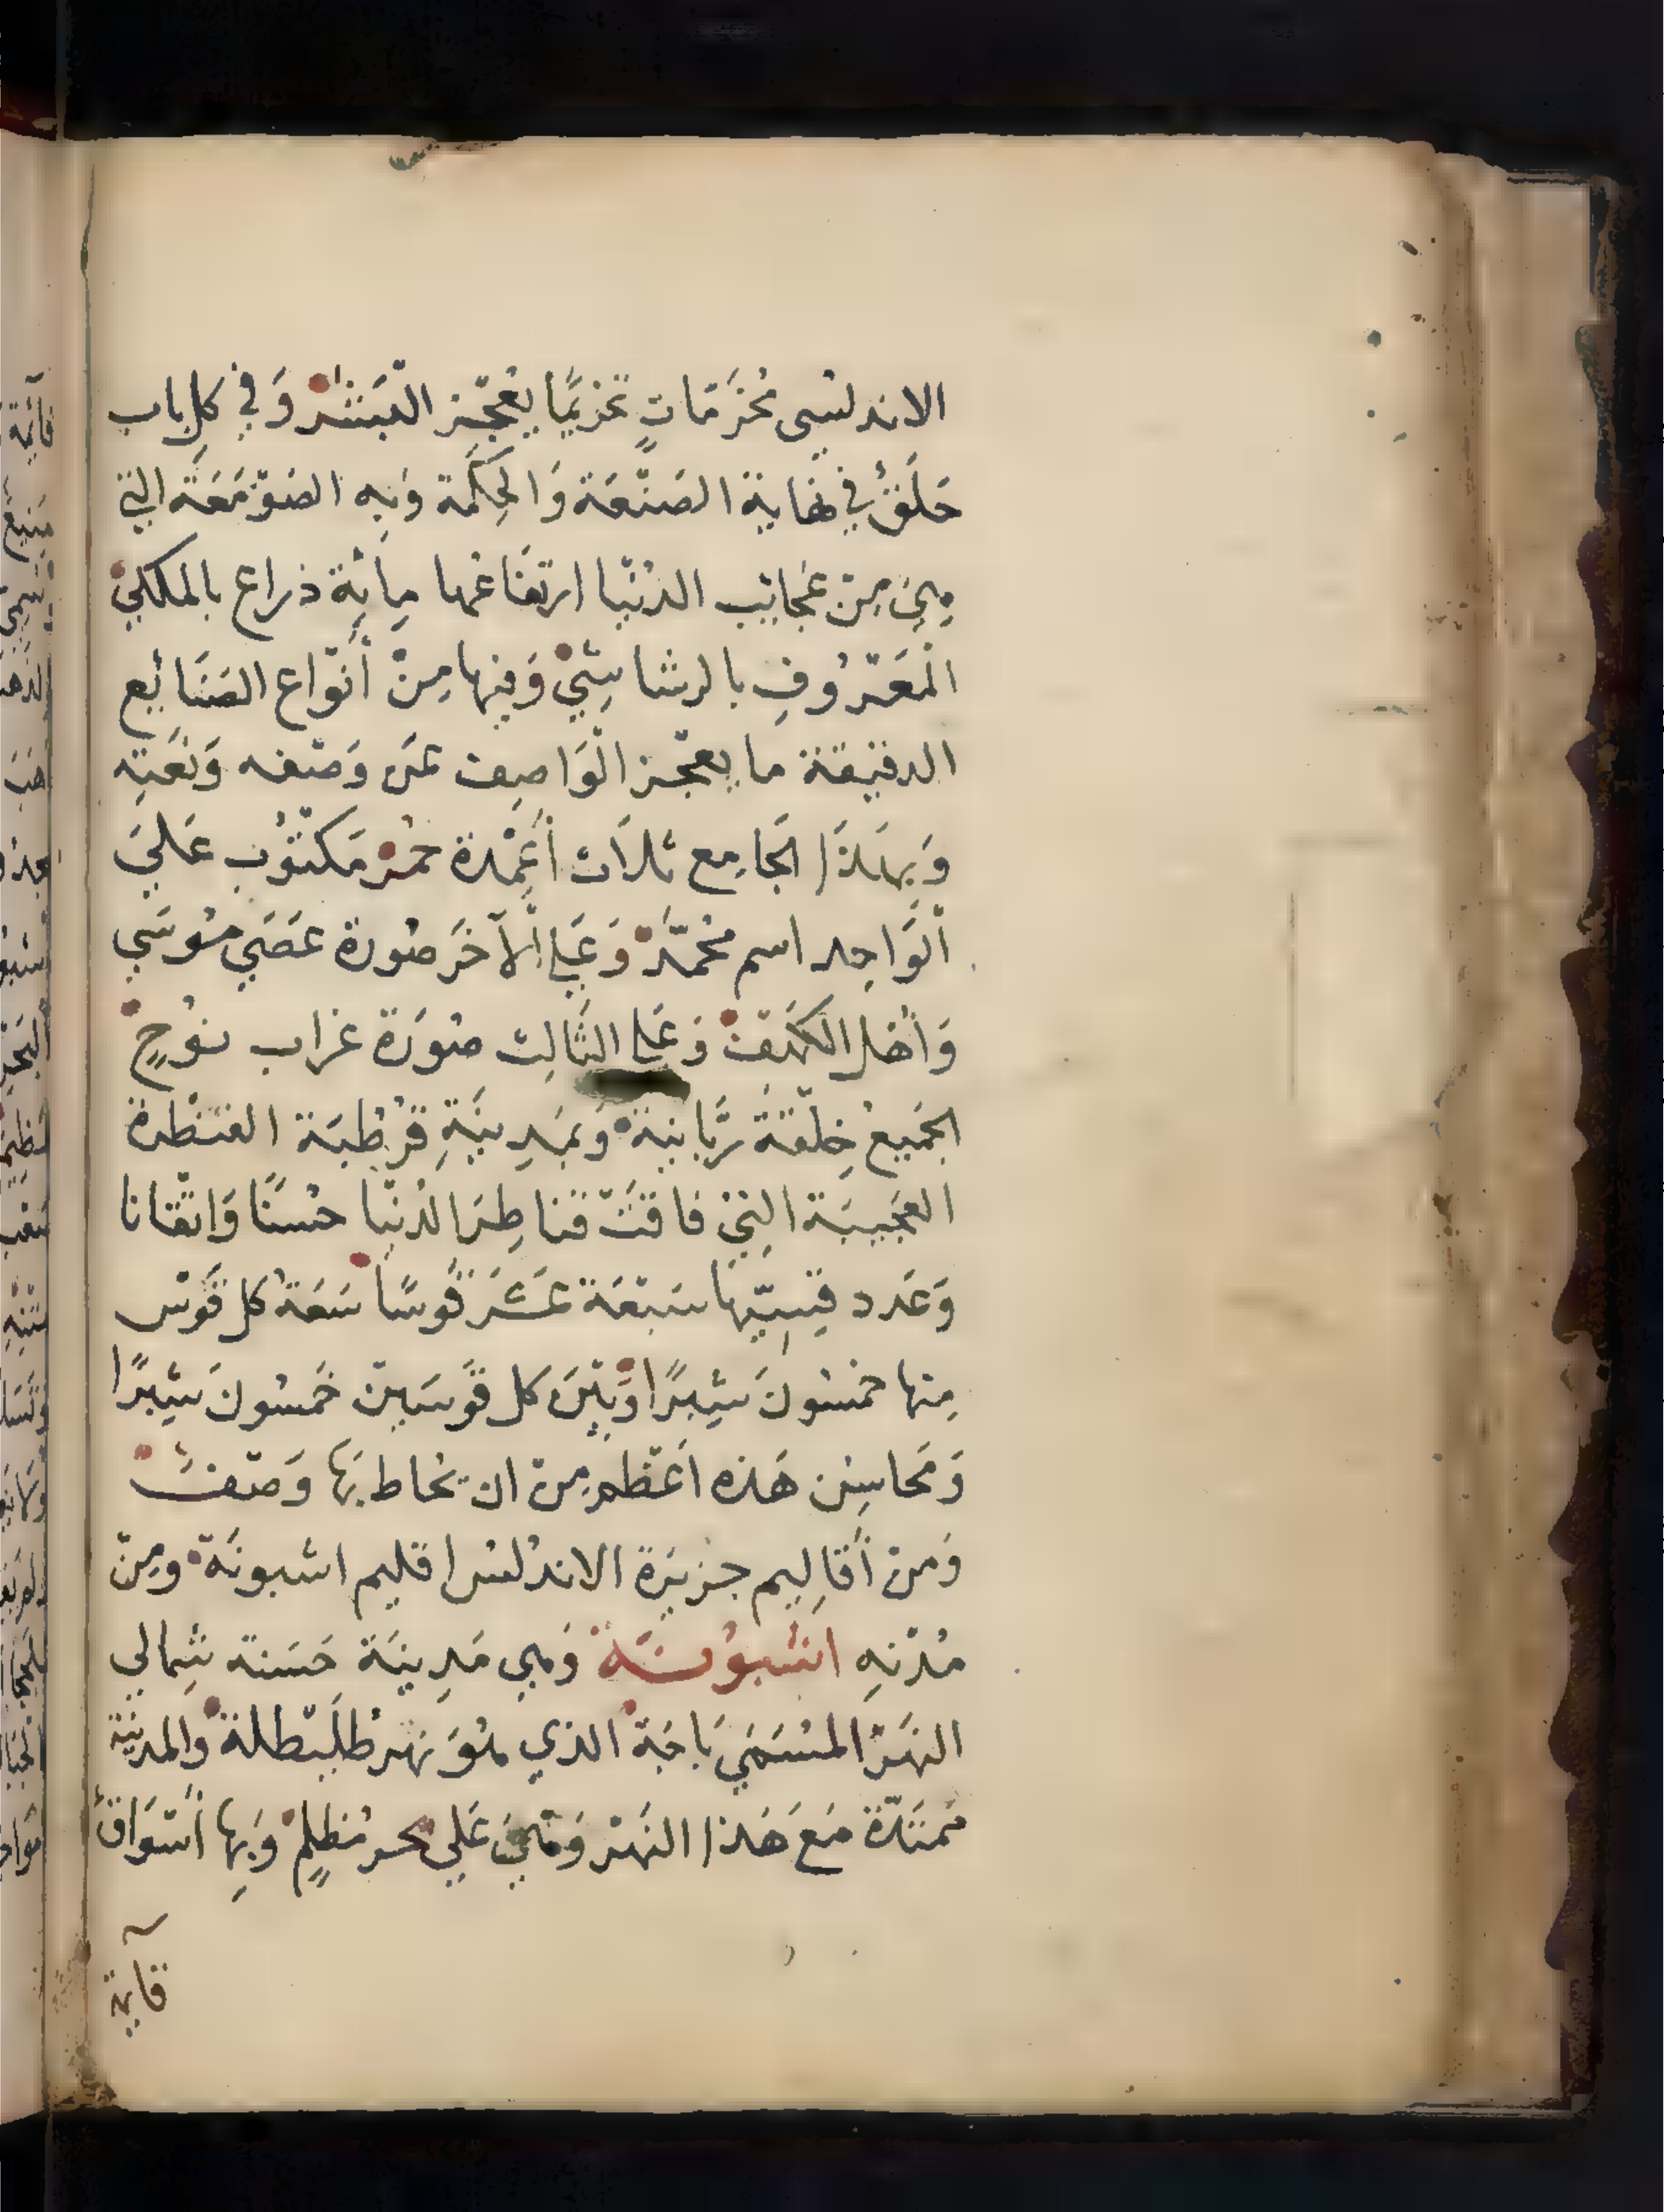 الاندلسى مُخَرَّمَاتٍ تخريمًا يُعْجِز البَشَرْ وَفي كل باب
حَلَقٌ في نهاية الصَنْعَة وَالحِكْمَة وَبِه الصَوْمَعَة التي
هِيَ مِنْ عَجَائِب الدُنْيَا ارتفَاعُها مِائَة ذراع بالملكيْ
الْمَعْرُوفِ بالرشاشِيْ وَفِيها مِنْ أَنْوَاع الصَنَائِع
الدقيقة ما يعْجز الْوَاصِف عَن وَصْفه وَنَعْتِه
وَبِهَذَا الجَامِع ثلَاث أَعْمِدة حُمْرْ مَكْتُوْب عَلَيَ
الْوَاحِد اسم مُحمَّدْ وَعَلى الْآخَر صُورة عَصَى مُوسَي
وَأَهْل الكَهْفْ وَعَلى الثَالِث صُورَة غراب نُوْحٍ
الجَمِيع خِلْقَة رَبَّانية وَبمَدِينَةِ قُرْطُبَة القنْطرة
العَجِيبَة التِيْ فَاقَتْ قنَاطِرَ الدُنْيَا حُسْنًا وَاتْقانا
وَعَدد قِسِيّها سَبْعَة عَشَرَ قَوسًا سَعَة كل قَوْس
مِنها خمْسُونَ شِبرًا وَبَيْنَ كل قَوسَين خَمسُونَ شِبْرًا
وَمَحاسِن هَذه اَعْظم مِن ان يُحاط بَها وَصْفْ
وَمن أَقَالِيم جزيرَة الاندلس اقليم اشبونَة ومِن
مُدْنهِ اشْبُوْنَة وَهي مَدِينَة حَسَنة شِمالي
النَهْر المُسَمَي بَاجَة الذي هُوَ نهْر طُلَيْطلة وَالمدينَة
مُمتَدَّة مَعَ هَذا النَهْر وَهْيَ عَلي بحر مُظلِمْ وَبِها أَسْوَاقٌ
قايمة